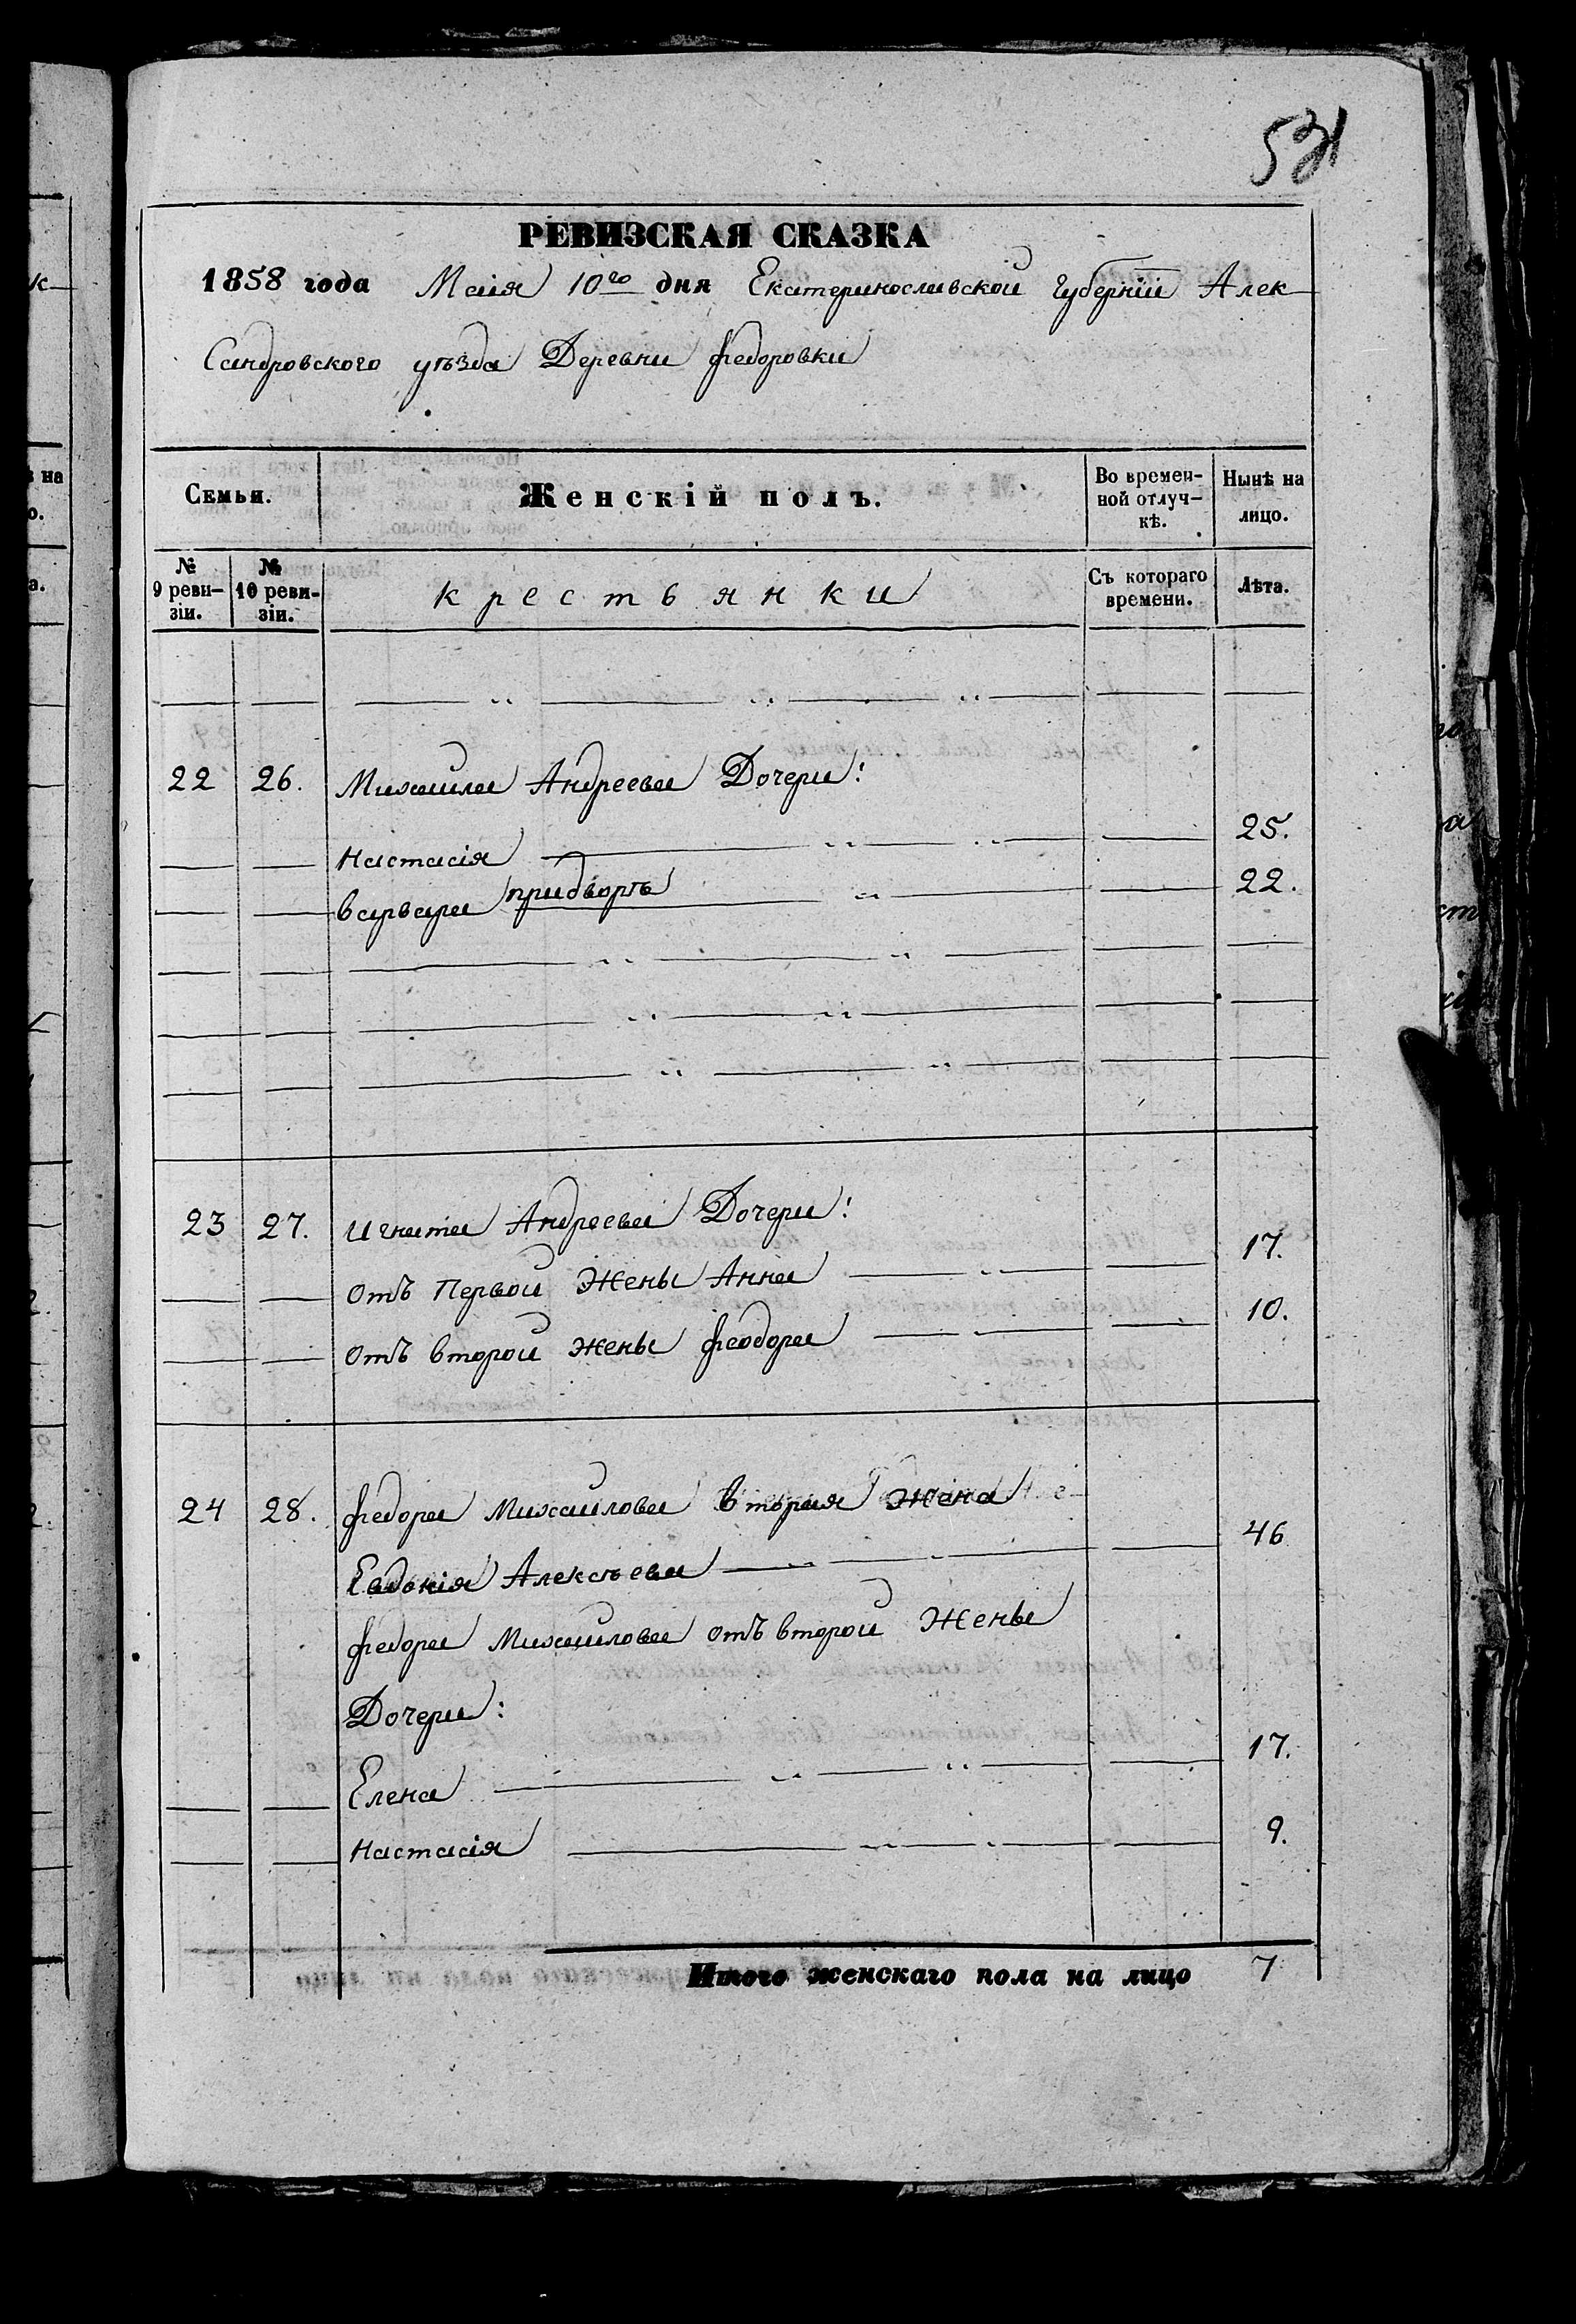 531
РЕВИЗСКАЯ СКАЗКА
1858 года Маія 10го дня Екатеринославской Губерніи Алек
Сандровского уѣзда Деревни Федоровки
Семьи.
Женскій полъ.
Во времен-
ной отлуч-
кѣ.
Нынѣ на
лицо.
№
9 реви-
зіи.
№
10 реви-
зіи.
крестьянки
Съ котораго
времени.
Лѣта.
22 26. Михаила Андреева Дочери:
Настасія 25.
Варвара придворѣ 22.
23 27. Игната Андреева Дочери:
отъ Первой Жены Анна 17.
отъ второй жены Феодора 10.
24 28. Федора Михаилова Вторая Жена
Евдокія Алексѣева 46
Федора Михаилова отъ второй Жены
Дочери:
Елена 17.
Настасія 9.
Итого женскаго пола на лицо 7